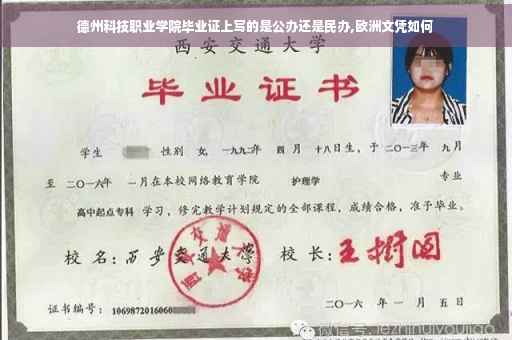 德州科技职业学院毕业证上写的是公办还是民办,欧洲文凭如何
西安交通大学
毕业证书
学生 性别 女, 一九九二年 四月 十八日生, 于二〇一三年 九月
至 二〇一六年 一月在本校网络教育学院 护理学 专业
高中起点专科 学习, 修完教学计划规定的全部课程, 成绩合格, 准予毕业。
校名: 西安交通大学 校长: 王树国
西安交通大学
证书编号: 1069872016060 二〇一六年 一月 五日
微信号: jiezhihuiyoujiao